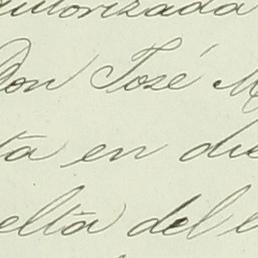 autorizada
Don José M
ta en die
elta del e